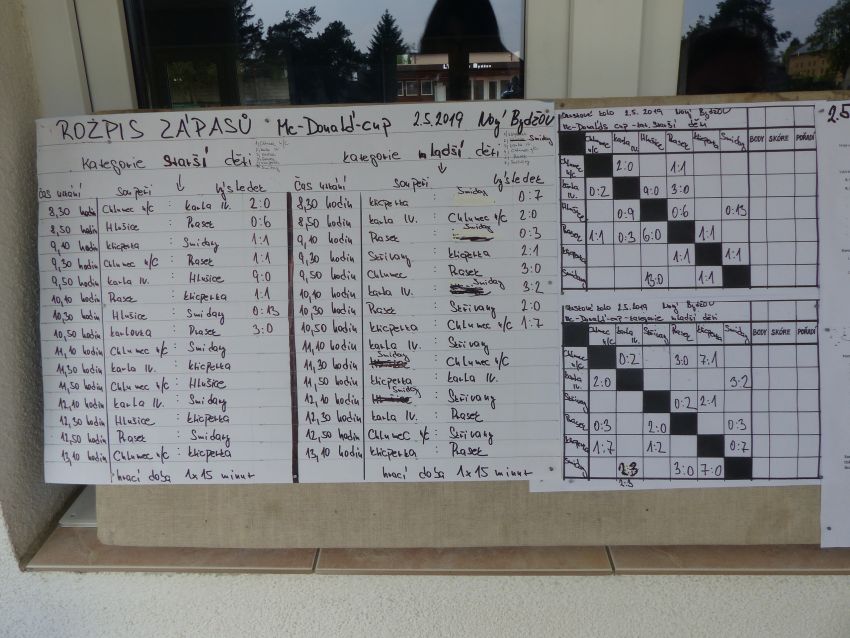 ROZPIS ZÁPASŮ Mc-Donald-cup 2.5.2019 Nový Bydžov
kategorie starší dětí
čas utkání soupeři výsledek
8,30 hodin Chlumec n/c : karla IV. 2:0
8,50 hodin Hlušice : Prasek 0:6
9,10 hodin klicperka : Smidary 1:1
9,30 hodin Chlumec n/c : Prasek 1:1
9,50 hodin karla IV. : Hlušice 9:0
10,10 hodin Prasek : klicperka 1:1
10,30 hodin Hlušice : Smidary 0:13
10,50 hodin karlovka : Prasek 3:0
11,10 hodin Chlumec n/c : Smidary
11,30 hodin karla IV. : klicperka
11,50 hodin Chlumec n/c : Hlušice
12,10 hodin karla IV. : Smidary
12,30 hodin Hlušice : klicperka
12,50 hodin Prasek : Smidary
13,10 hodin Chlumec n/c : klicperka
hrací doba 1x15 minut
kategorie mladší dětí
čas utkání soupeři výsledek
8,30 hodin klicperka : Smidary 0:7
8,50 hodin karla IV. : Chlumec n/c 2:0
9,10 hodin Prasek : Smidary 0:3
9,30 hodin Skřivany : klicperka 2:1
9,50 hodin Chlumec : Prasek 3:0
10,10 hodin karla IV. : Smidary 3:2
10,30 hodin Prasek : Skřivany 2:0
10,50 hodin klicperka : Chlumec n/c 1:7
11,10 hodin karla IV. : Skřivany
11,30 hodin Smidary : Chlumec n/c
11,50 hodin klicperka : karla IV.
12,10 hodin Smidary : Skřivany
12,30 hodin karla IV. : Prasek
12,50 hodin Chlumec n/c : Skřivany
13,10 hodin klicperka : Prasek
hrací doba 1x15 minut
kolo 2.5.2019 Nový Bydžov
Mc-Donalds cup - kat. starší dětí
Chlumec n/c karla IV. Hlušice Prasek klicperka Smidary BODY SKÓRE POŘADÍ
Chlumec n/c 2:0 1:1
karla IV. 0:2 9:0 3:0
Hlušice 0:9 0:6 0:13
Prasek 1:1 0:3 6:0 1:1
klicperka 1:1 1:1
Smidary 13:0 1:1
kolo 2.5.2019 Nový Bydžov
Mc-Donald-cup-kategorie mladší dětí
Chlumec n/c karla IV. Skřivany Prasek klicperka Smidary BODY SKÓRE POŘADÍ
Chlumec n/c 0:2 3:0 7:1
karla IV. 2:0 3:2
Skřivany 0:2 2:1
Prasek 0:3 2:0 0:3
klicperka 1:7 1:2 0:7
Smidary 2:3 3:0 7:0
2:3
2.5